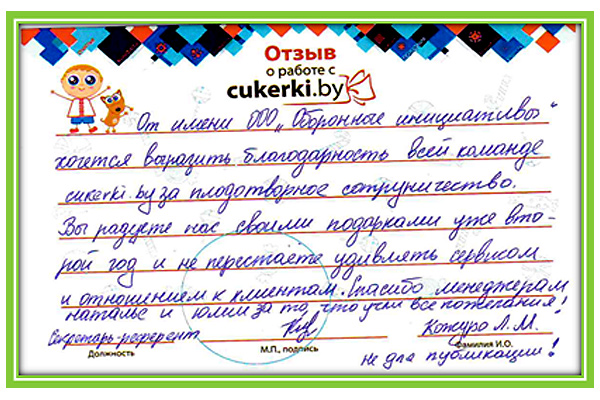 Отзыв
о работе с
cukerki.by
От имени ООО „Оборонные инициативы“
хочется выразить благодарность всей команде
cukerki.by за плодотворное сотрудничество.
Вы радуете нас своими подарками уже вто-
рой год и не перестаёте удивлять сервисом
и отношением к клиентам. Спасибо менеджерам
наталье и юлии за то, что учли все пожелания!
Секретарь-референт
Кожуро Л.М.
Должность
М.П., подпись
Фамилия И.О.
не для публикации!